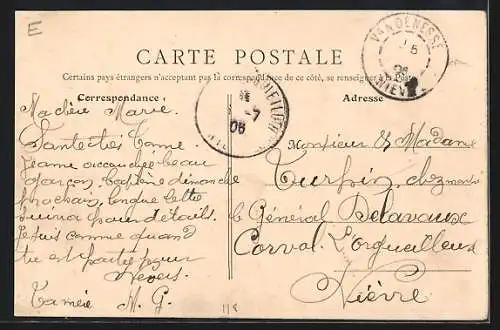 E
CARTE POSTALE
Certains pays étrangers n'acceptant pas la correspondance de ce côté, se renseigner à la Poste
Correspondance
Ma chère Marie.
Santé très bonne
Jeanne accouchée beau
garçon, baptême dimanche
prochain, longue lettre
suivra pour détails.
Je suis comme quand
tu est partie pour
Nevers.
Ta mère M. G.
Adresse
Monsieur & Madame
Turpin, chez monsr
le Général Delavaux
Corvol l'Orgueilleux
Nièvre
VANDENESSE
5
08
NIÈVRE
7
08
118